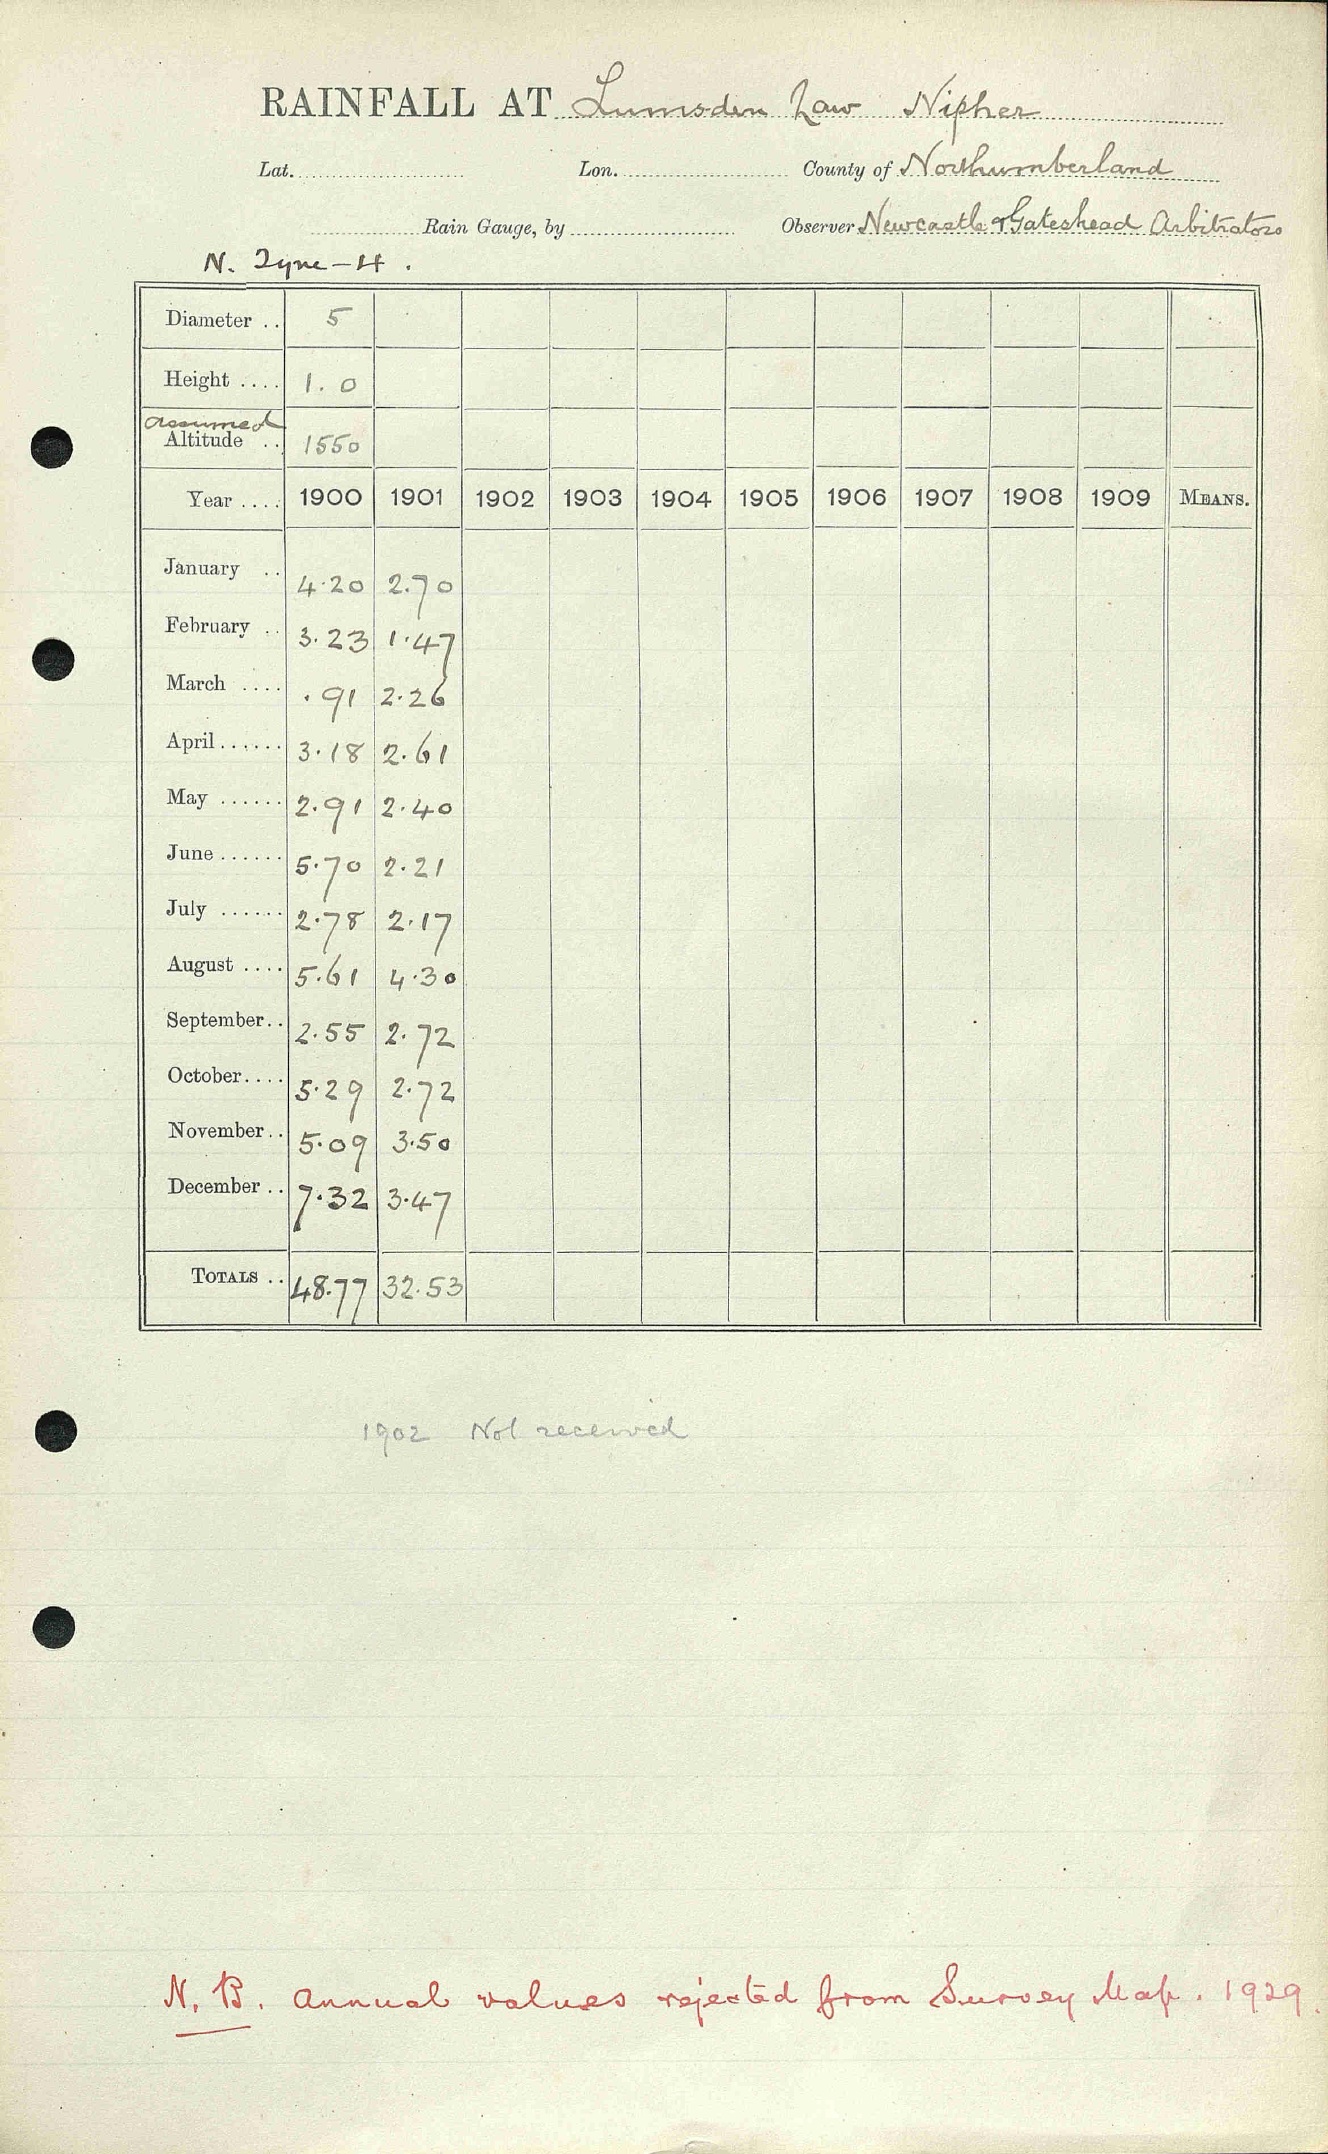 RAINFALL AT Lumsden Law Nipher
Lat. Lon. County of Northumberland
Rain Gauge, by Observer Newcastle & Gateshead Arbitrators
N. Tyne - 4.
Diameter .. 5
Height .... 1.0
assumed
Altitude .. 1550
Year .... 1900 1901 1902 1903 1904 1905 1906 1907 1908 1909 MEANS.
January .. 4.20 2.70
February .. 3.23 1.47
March .... .91 2.26
April ...... 3.18 2.61
May ...... 2.91 2.40
June ...... 5.70 2.21
July ...... 2.78 2.17
August .... 5.61 4.30
September .. 2.55 2.72
October .... 5.29 2.72
November .. 5.09 3.50
December .. 7.32 3.47
TOTALS .. 48.77 32.53
1902 Not received
N.B. Annual values rejected from Survey Map. 1929.